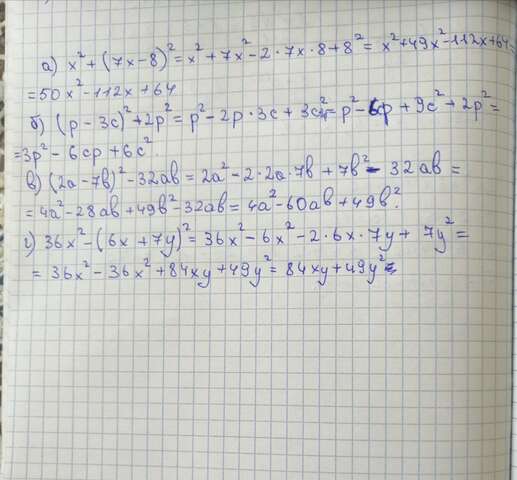 а) x² + (7x - 8)² = x² + 7x² - 2 · 7x · 8 + 8² = x² + 49x² - 112x + 64 =
= 50x² - 112x + 64
б) (p - 3c)² + 2p² = p² - 2p · 3c + 3c² = p² - 6p + 9c² + 2p² =
= 3p² - 6cp + 6c².
в) (2a - 7b)² - 32ab = 2a² - 2 · 2a · 7b + 7b² - 32ab =
= 4a² - 28ab + 49b² - 32ab = 4a² - 60ab + 49b².
г) 36x² - (6x + 7y)² = 36x² - 6x² - 2 · 6x · 7y + 7y² =
= 36x² - 36x² + 84xy + 49y² = 84xy + 49y²